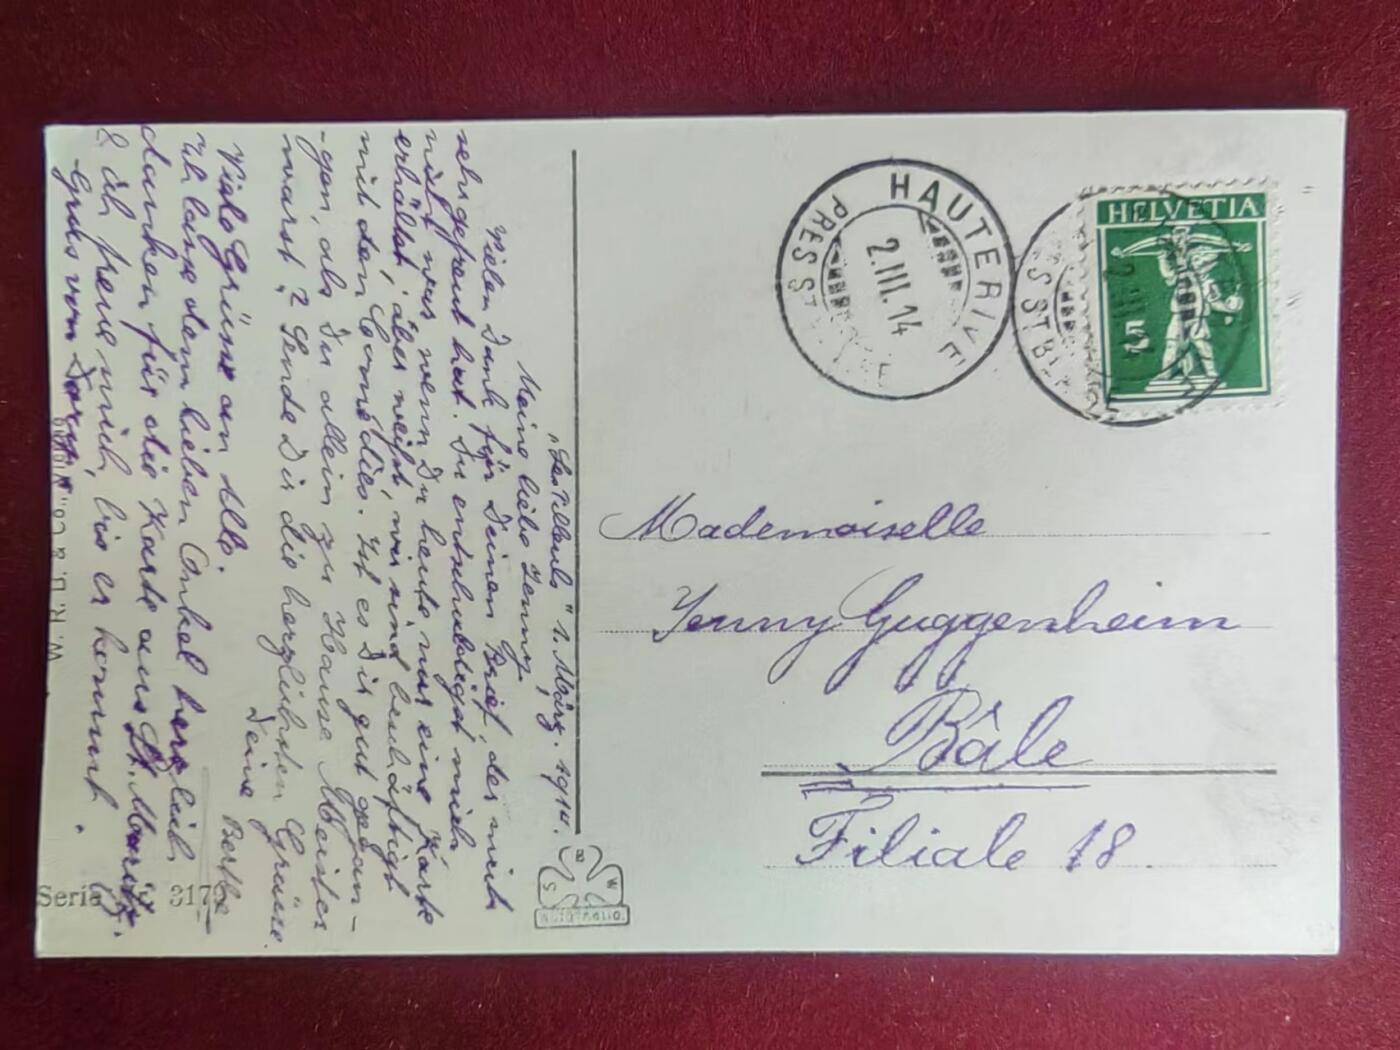 "Les Tilleuls" 1. März. 1914.
Meine liebe Jenny,
Vielen Dank für Deinen Brief, der mich
sehr gefreut hat. Du entschuldigst mich
nicht wenn Du heute nur eine Karte
erhältst, aber weißt, wir sind beschäftigt
mit den Comedies. Ist es Dir gut gegan-
-gen, als Du allein zu Hause Meister
warst? Sende Dir die herzlichsten Grüsse.
Deine Berthe
Viele Grüsse an Alle.
Ich lasse dem lieben Onkel herzlich
danken für die Karte aus St. Moritz,
& ich freue mich, bis er kommt.
Gruss von
W. R. B. & Co.
Serie 317
HAUTERIVE
PRÈS ST
2.III.14
HELVETIA
5
S B W
Mademoiselle
Jenny Guggenheim
Bâle
Filiale 18.